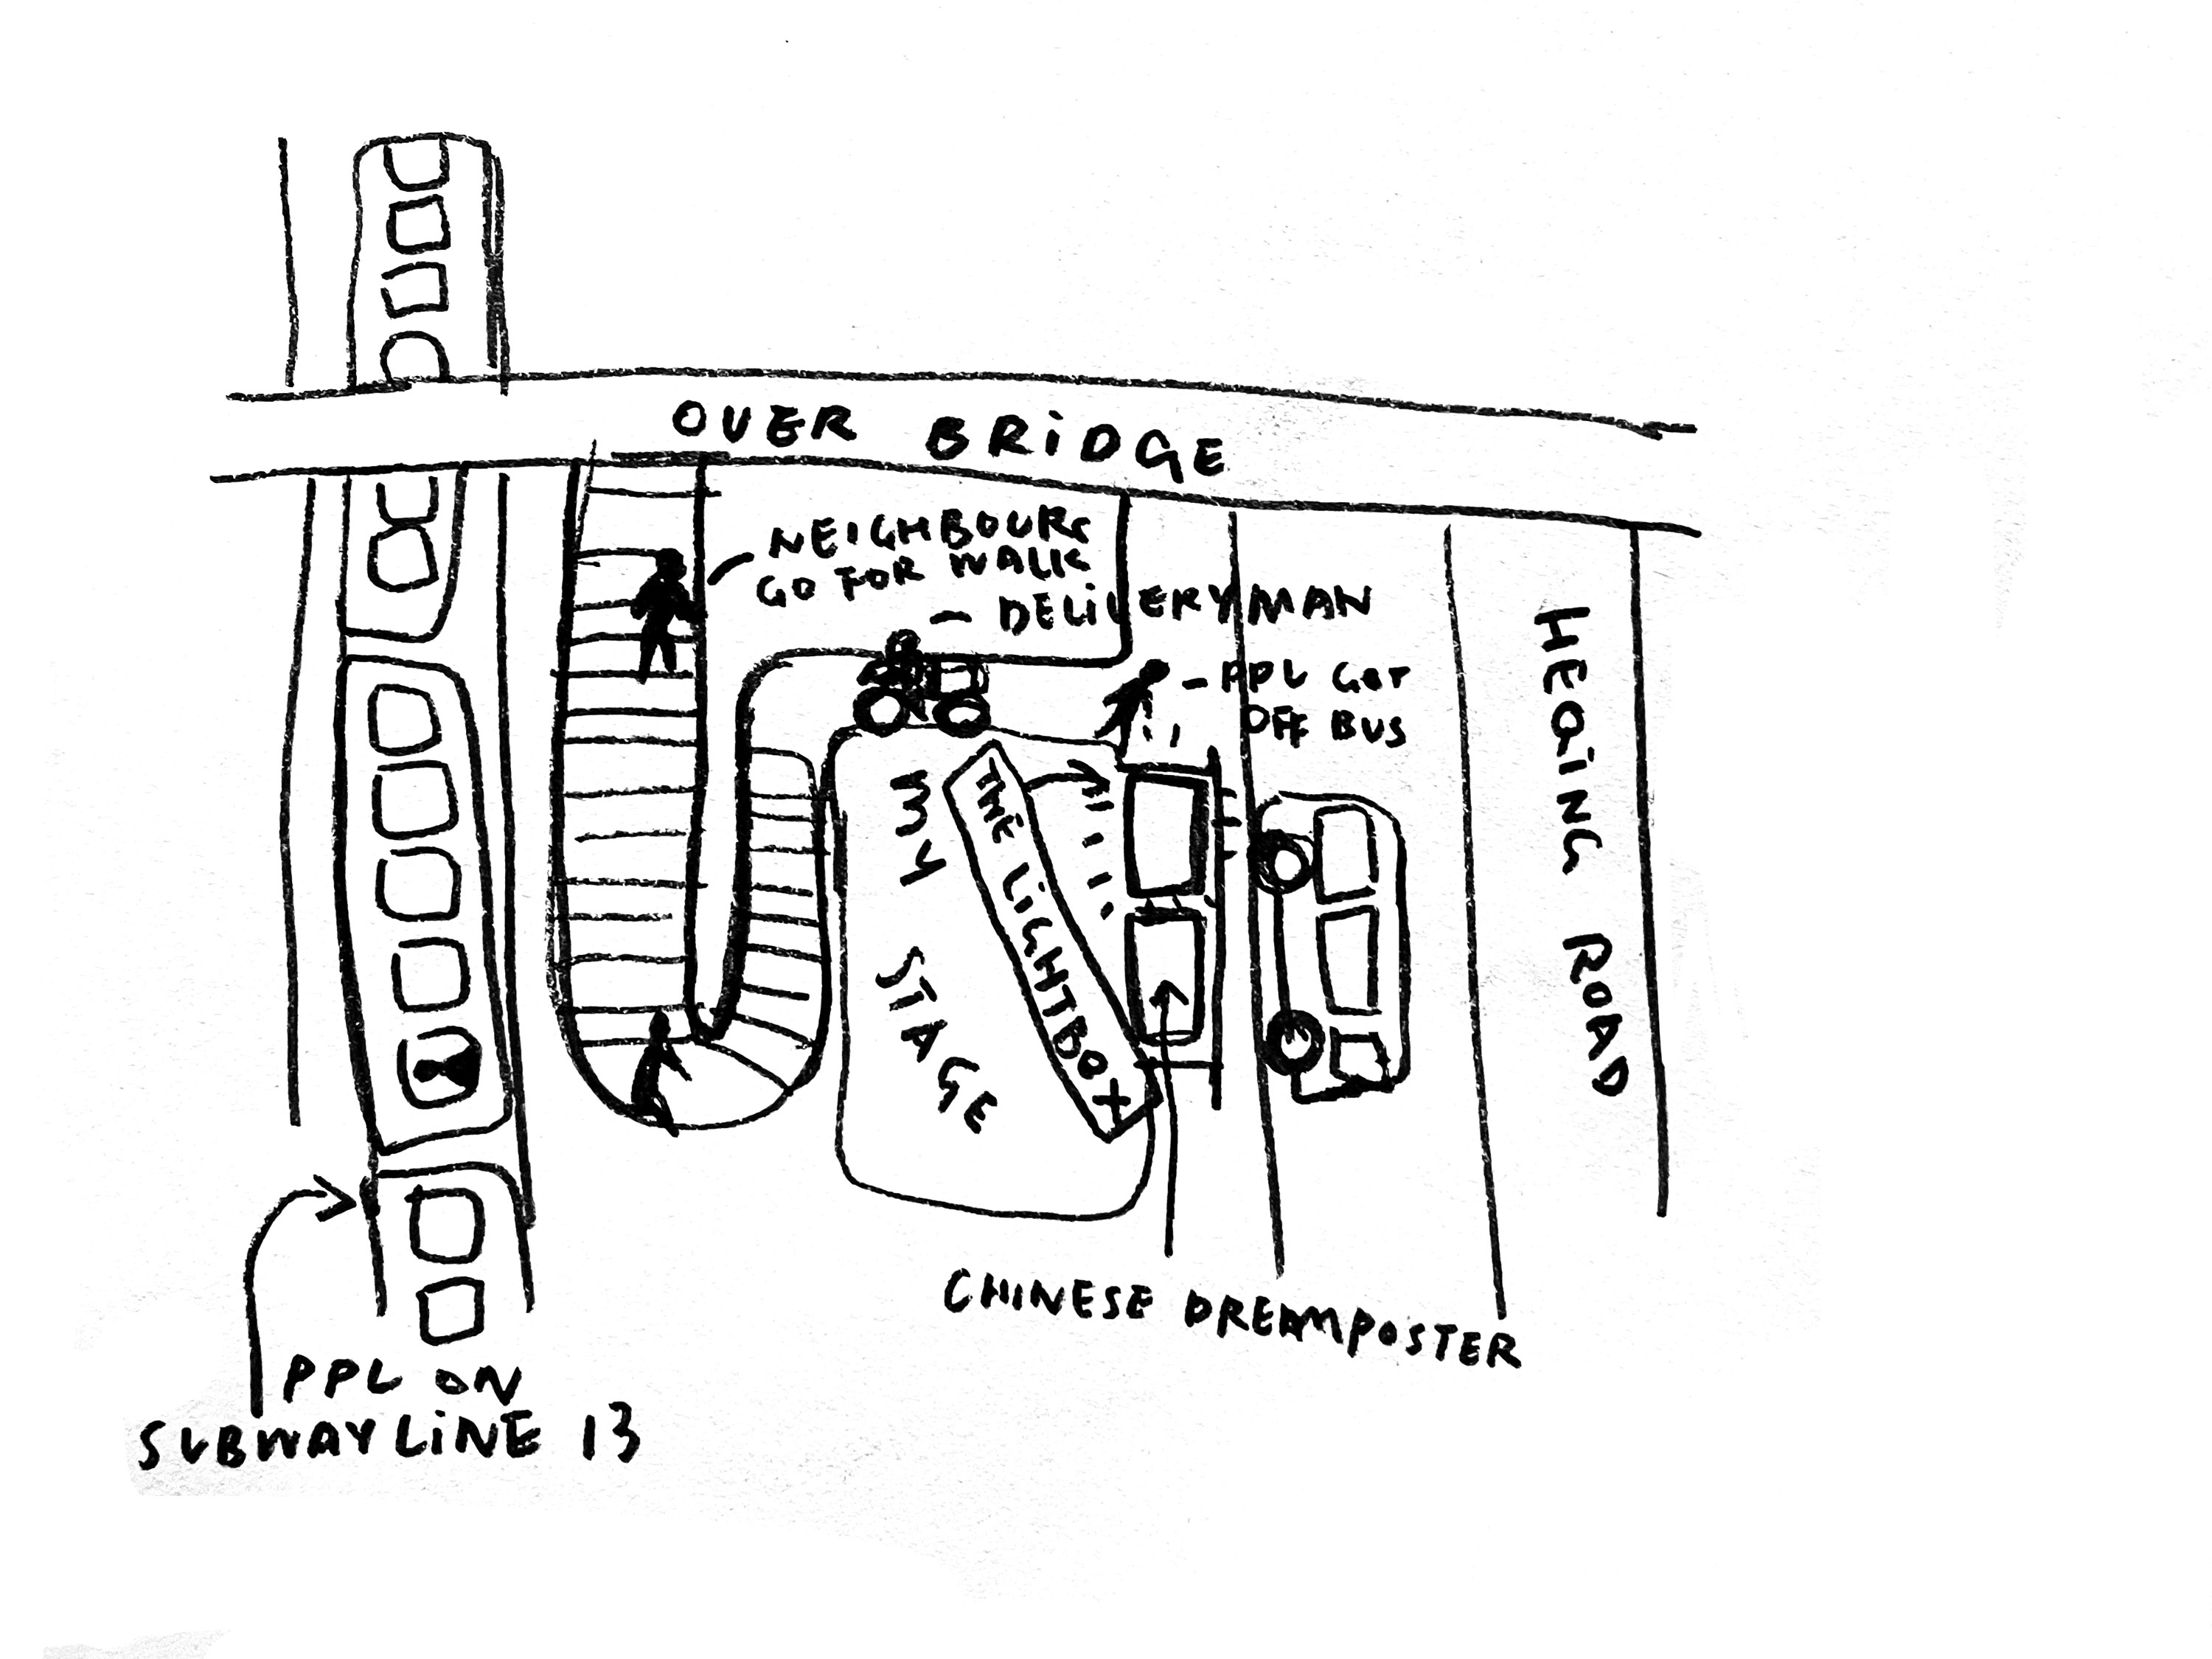 OVER BRiDGE
NEIGHBOURS
GO FOR WALK
DELiVERYMAN
PPL GET
OFF BUS
HEQiNG ROAD
MY STAGE
THE LiGHTBOX
CHINESE DREAMPOSTER
PPL ON
SUBWAY LiNE 13